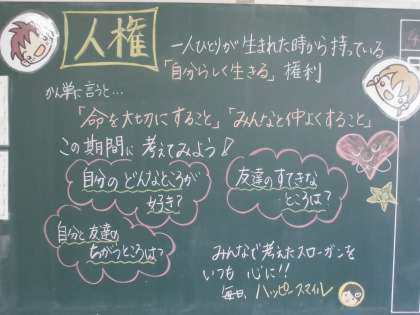 人権
一人ひとりが生まれた時から持っている
「自分らしく生きる」権利
かん単に言うと…
「命を大切にすること」「みんなと仲よくすること」
この期間に考えてみよう♪
自分のどんなところが
好き？
友達のすてきな
ところは？
自分と友達の
ちがうところは？
みんなで考えたスローガンを
いつも心に!!
毎日、ハッピースマイル
4